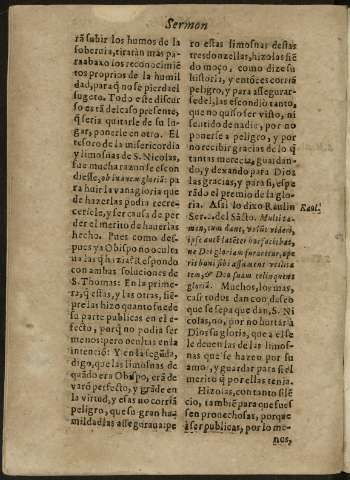 Sermon
rã subir los humos de la
soberuia, tiraràn mas pa-
raabaxo los reconocimiẽ
tos proprios de la humil
dad, para q̃ no se pierda el
sugeto. Todo este discur
so es rã del caso presente,
q̃ seria quitarle de su lu-
gar, ponerle en otro. El
tesoro de la misericordia
y limosnas de S. Nicolas,
fue mucha razon se escon
diesse, ob inanem gloriã: pa
ra huir la vanagloria que
de hazerlas podia recre-
cersele, y ser causa de per
der el merito de hauerlas
hecho. Pues como des-
pues ya Obispo no oculta
ua las q̃ hazia? Respondo
con ambas soluciones de
S. Thomas: En la prime-
ra, q̃ estas, y las otras, siẽ
pre las hizo quanto fue de
su parte publicas en el e-
fecto, porq̃ no podia ser
menos: pero ocultas en la
intenció: Y en la segũda,
digo, que las limosnas de
quãdo era Obispo, erã de
varó perfecto, y grãde en
la virtud, y essas no corriã
peligro, que su gran hu-
mildad las asseguraua: pe
ro estas limosnas destas
tres donzellas, hizolas siẽ
do moço, como dize su
historia, y entóces corriã
peligro, y para assegurar-
se del, las escondiò tanto,
que no quiso ser visto, ni
sentido de nadie, por no
ponerse a peligro, y por
no recibir gracias de lo q̃
tantas merecia, guardan-
do, y dexando para Dios
las gracias, y para si, espe
rãdo el premio de la glo-
ria. Assi lo dixo Raulin
Raul.
Ser... del Sãcto. Multi ta-
men, cum dant, volũt videri,
ipse autẽ latẽter hoc faciebat,
ne Dei gloriam furaretur, ope
ris boni sibi assument vtilita
tem, & Deo suam relinquens
gloriã. Muchos, los mas,
casi todos dan con desseo
que se sepa que dan, S. Ni
colas, no, por no hurtar à
Dios su gloria, que a el se
le deuen las de las limos-
nas que se hazen por su
amo, y guardar para si el
merito q̃ por ellas tenia.
Hizolas, con tanto silẽ
cio, tambiẽ para que fues
sen prouechosas, porque
a ser publicas, por lo me-
nos,